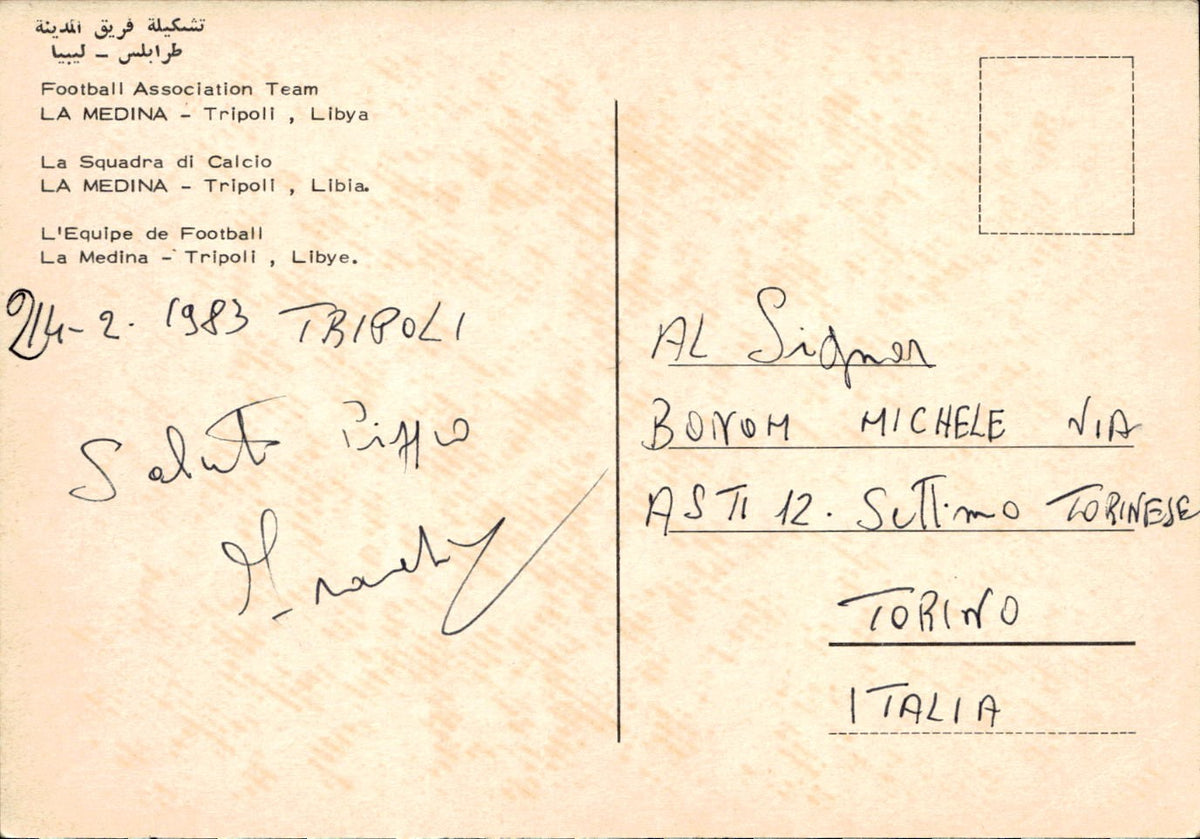 تشكيلة فريق المدينة
طرابلس - ليبيا
Football Association Team
LA MEDINA - Tripoli , Libya
La Squadra di Calcio
LA MEDINA - Tripoli , Libia.
L'Equipe de Football
La Medina - Tripoli , Libye.
24-2. 1983 TRIPOLI
Saluti
AL Signor
BONOM MICHELE VIA
ASTI 12. Settimo TORINESE
TORINO
ITALIA